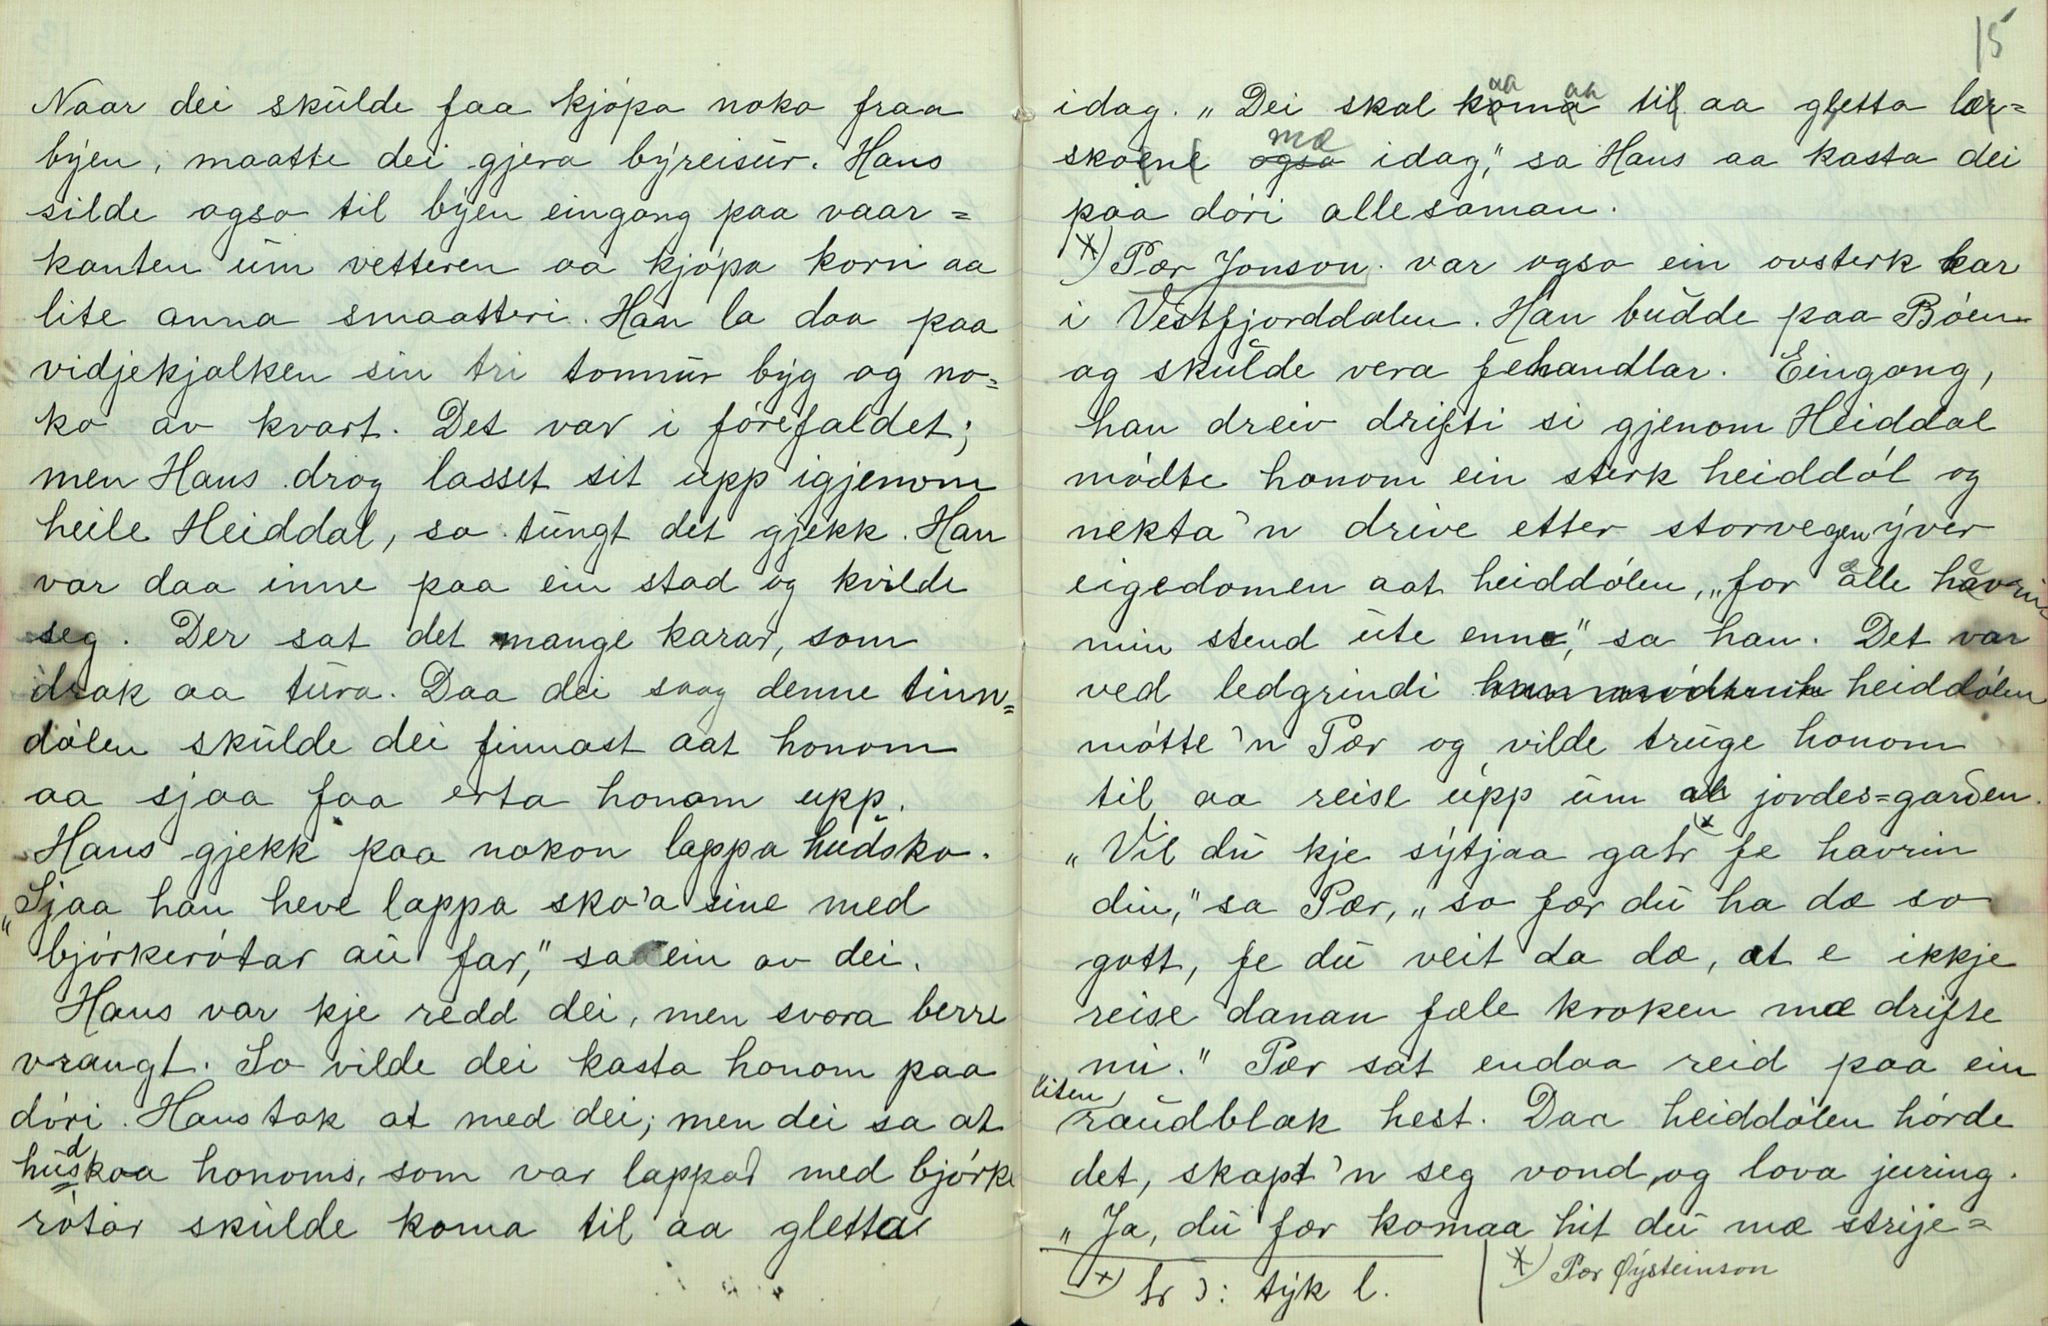 Naar dei skulde faa kjöpa noko fraa
býen, maatte dei gjera býreisur. Hans
silde ogso til býen eingong paa vaar=
kanten um vetteren aa kjöpa korn aa
lite anna smaatteri. Han la daa paa
vidjekjalken sin tri tonnur býg og no=
ko av kvart. Det var i förefaldet;
men Hans drog lasset sit upp igjenom
heile Heiddal, so tungt det gjekk. Han
var daa inne paa ein stad og kvilde
seg. Der sat det mange karar, som
drak aa tura. Daa dei saag denne tinn=
dölen skulde dei finnast aat honom
aa sjaa faa erta honom upp.
Hans gjekk paa nokon lappa hudsko.
„Sjaa han heve lappa sko'a sine med
björkerötar au far," sa ein av dei.
Hans var kje redd dei, men svora berre
vrangt. So vilde dei kasta honom paa
döri. Hans tok at med dei; men dei sa at
hudskoa honoms, som var lappad med björke
rötar skulde koma til aa gletta
15
idag. „Dei skal koma til aa gletta lær=
skoene ogso mæ idag," sa Hans aa kasta dei
paa döri allesaman.
x) Pær Jonson. var ogso ein ovsterk kar
i Vestfjorddalen. Han budde paa Böen
og skulde vera fehandlar. Eingong,
han dreiv drifti si gjenom Heiddal
mödte honom ein sterk heiddöl og
nekta 'n drive etter storvegen ýver
eigedomen aat heiddölen, „for alle havrin
min stend ute enno," sa han. Det var
ved ledgrindi heiddölen
mötte 'n Pær og vilde truge honom
til aa reise upp um al jordes=garden.
„Vil du kje sýtjaa gatr x) fe havrin
din," sa Pær, „so fær du ha dæ so
gott, fe du veit da dæ, at e ikkje
reise danan fæle kroken mæ drifte
mi." Pær sat endaa reid paa ein
liten raudblak hest. Daa heiddölen hörde
det, skapt 'n seg vond, og lova juring.
„Ja, du fær komaa hit du mæ strije=
x) tr ɔ: týk l.
x) Pær Øýsteinson